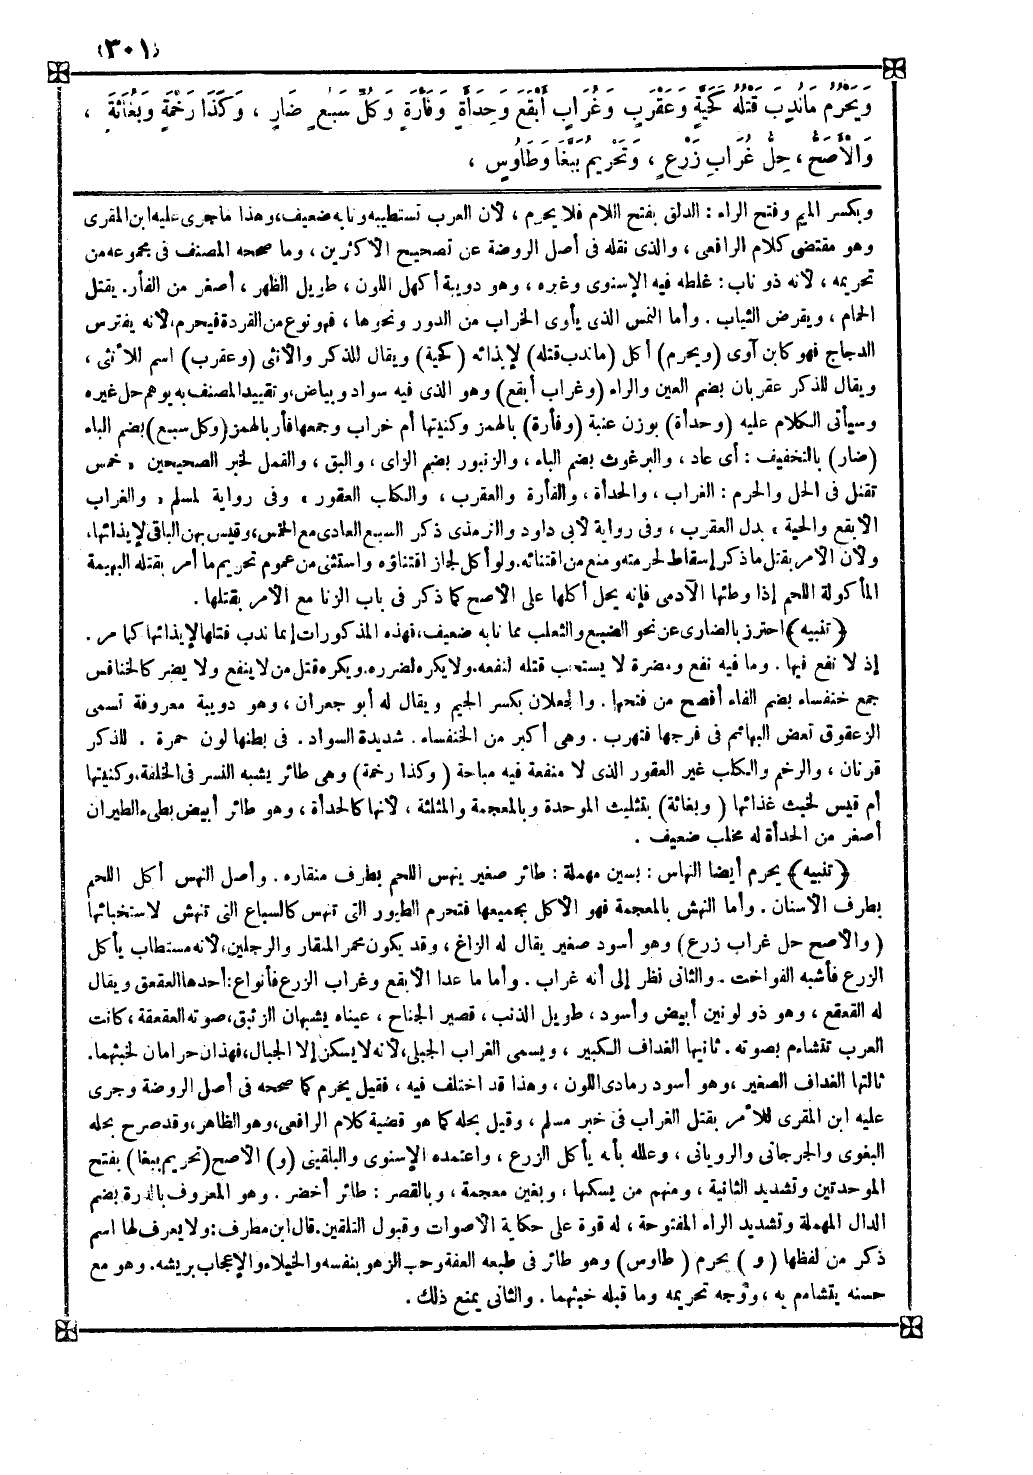 (٣٠١)
وَيَحْرُمُ مَا نُدِبَ قَتْلُهُ كَحَيَّةٍ وَعَقْرَبٍ وَغُرَابٍ أَبْقَعَ وَحِدَأَةٍ وَفَأْرَةٍ وَكُلِّ سَبُعٍ ضَارٍ ، وَكَذَا رَخْمَةٍ وَبُغَاثَةٍ ،
وَالْأَصَحُّ ، حِلُّ غُرَابِ زَرْعٍ ، وَتَحْرِيمُ بَبَّغَا وَطَاوُسٍ ،
وبكسر الميم وفتح الراء : الدلق بفتح اللام فلا يحرم ، لأن العرب تستطيبه ونابه ضعيف، وهذا ماجرى عليه ابن المقرى
وهو مقتضى كلام الرافعى ، والذى نقله فى أصل الروضة عن تصحيح الأكثرين ، وما صححه المصنف فى مجموعه من
تحريمه ، لأنه ذو ناب : غلطه فيه الإسنوى وغيره ، وهو دويبة أكهل اللون ، طويل الظهر ، أصغر من الفأر. يقتل
الحمام ، ويقرض الثياب . وأما النمس الذى يأوى الخراب من الدور ونحوها ، فهو نوع من القردة فيحرم، لأنه يفترس
الدجاج فهو كابن آوى (ويحرم) أكل (ماندب قتله) لإيذائه (كحية) ويقال للذكر والأنثى (وعقرب) اسم للأنثى ،
ويقال للذكر عقربان بضم العين والراء (وغراب أبقع) وهو الذى فيه سواد وبياض، وتقييد المصنف به يوهم حل غيره
وسيأتى الكلام عليه (وحدأة) بوزن عنبة (وفأرة) بالهمز وكنيتها أم خراب وجمعها فأر بالهمز (وكل سبع) بضم الباء
(ضار) بالتخفيف : أى عاد ، والبرغوث بضم الباء ، والزنبور بضم الزاى ، والبق ، والقمل لخبر الصحيحين « خمس
تقتل فى الحل والحرم : الغراب ، والحدأة ، والفأرة والعقرب ، والكلب العقور » وفى رواية لمسلم « والغراب
الأبقع والحية » بدل العقرب ، وفى رواية لأبى داود والترمذى ذكر السبع العادى مع الخمس، وقيس بهن الباقى لإيذائها،
ولأن الأمر بقتل ما ذكر إسقاط لحرمته ومنع من اقتنائه. ولو أكل لجاز اقتناؤه واستثنى من عموم تحريم ما أمر بقتله البهيمة
المأكولة اللحم إذا وطئها الآدمى فإنه يحل أكلها على الأصح كما ذكر فى باب الزنا مع الأمر بقتلها .
﴿ تنبيه ﴾ احترز بالضارى عن نحو الضبع والثعلب مما نابه ضعيف، فهذه المذكورات إنما ندب قتلها لإيذائها كما مر .
إذ لا نفع فيها . وما فيه نفع ومضرة لا يستحب قتله لنفعه، ولا يكره لضرره. ويكره قتل من لا ينفع ولا يضر كالخنافس
جمع خنفساء بضم الفاء أفصح من فتحها . والجعلان بكسر الجيم ويقال له أبو جعران ، وهو دويبة معروفة تسمى
الزعقوق تعض البهائم فى فرجها فتهرب . وهى أكبر من الخنفساء. شديدة السواد. فى بطنها لون حمرة . للذكر
قرنان ، والرخم والكلب غير العقور الذى لا منفعة فيه مباحة ( وكذا رخمة) وهى طائر يشبه النسر فى الخلقة، وكنيتها
أم قيس لخبث غذائها ( وبغاثة) بتثليث الموحدة وبالمعجمة والمثلثة ، لأنها كالحدأة ، وهو طائر أبيض بطىء الطيران
أصغر من الحدأة له مخلب ضعيف .
﴿ تنبيه ﴾ يحرم أيضا النهاس : بسين مهملة : طائر صغير ينهس اللحم بطرف منقاره . وأصل النهس أكل اللحم
بطرف الأسنان . وأما النهش بالمعجمة فهو الأكل بجميعها فتحرم الطيور التى تنهس كالسباع التى تنهش لاستخبائها
( والأصح حل غراب زرع) وهو أسود صغير يقال له الزاغ ، وقد يكون محمر المنقار والرجلين، لأنه مستطاب يأكل
الزرع فأشبه الفواخت . والثانى نظر إلى أنه غراب . وأما ما عدا الأبقع وغراب الزرع فأنواع: أحدها العقعق ويقال
له القعقع ، وهو ذو لونين أبيض وأسود ، طويل الذنب ، قصير الجناح ، عيناه يشبهان الزئبق، صوته العقعقة ، كانت
العرب تتشاءم بصوته . ثانيها الغداف الكبير ، ويسمى الغراب الجبلى، لأنه لا يسكن إلا الجبال، فهذان حرامان لخبثهما.
ثالثها الغداف الصغير ، وهو أسود رمادى اللون ، وهذا قد اختلف فيه ، فقيل يحرم كما صححه فى أصل الروضة وجرى
عليه ابن المقرى للأمر بقتل الغراب فى خبر مسلم ، وقيل بحله كما هو قضية كلام الرافعى، وهو الظاهر، وقد صرح بحله
البغوى والجرجانى والرويانى ، وعلله بأنه يأكل الزرع ، واعتمده الإسنوى والبلقينى (و) الأصح (تحريم ببغا) بفتح
الموحدتين وتشديد الثانية ، ومنهم من يسكنها ، وبغين معجمة ، وبالقصر : طائر أخضر . وهو المعروف بالدرة بضم
الدال المهملة وتشديد الراء المفتوحة ، له قوة على حكاية الأصوات وقبول التلقين. قال ابن مطرف : ولا يعرف لها اسم
ذكر من لفظها ( و ) يحرم ( طاوس) وهو طائر فى طبعه العفة وحب الزهو بنفسه والخيلاء والإعجاب بريشه. وهو مع
حسنه يتشاءم به ، ووجه تحريمه وما قبله خبثهما . والثانى يمنع ذلك .